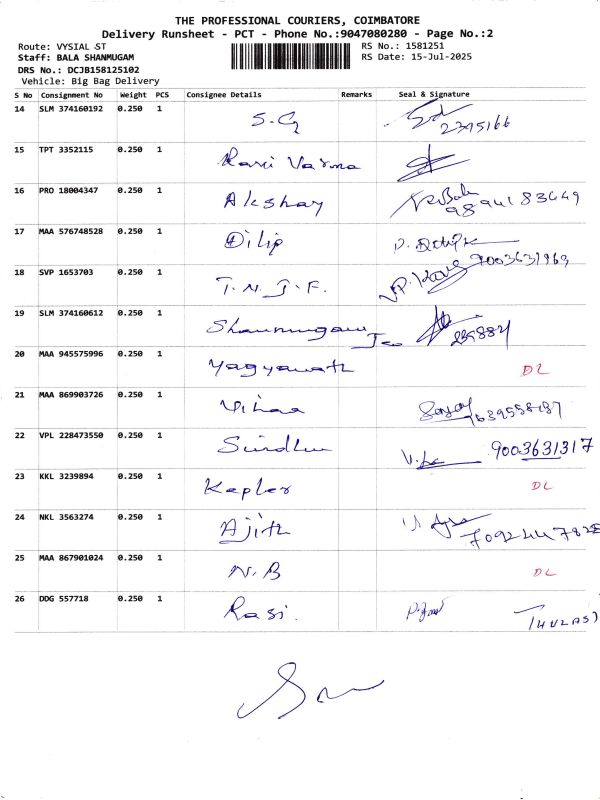 THE PROFESSIONAL COURIERS, COIMBATORE
Delivery Runsheet - PCT - Phone No.:9047080280 - Page No.:2
Route: VYSIAL ST RS No.: 1581251
Staff: BALA SHANMUGAM RS Date: 15-Jul-2025
DRS No.: DCJB158125102
Vehicle: Big Bag Delivery
S No Consignment No Weight PCS Consignee Details Remarks Seal & Signature
14 SLM 374160192 0.250 1 S.G 2395166
15 TPT 3352115 0.250 1 Ravi Varma
16 PRO 18004347 0.250 1 Akshay 9894183649
17 MAA 576748528 0.250 1 Dilip
18 SVP 1653703 0.250 1 T.N.J.F. 9003631969
19 SLM 374160612 0.250 1 Shanmugam
20 MAA 945575996 0.250 1 Yagyawath DL
21 MAA 869903726 0.250 1
22 VPL 228473550 0.250 1 9003631317
23 KKL 3239894 0.250 1 Kepler DL
24 NKL 3563274 0.250 1 Ajith
25 MAA 867901024 0.250 1 N.B DL
26 DDG 557718 0.250 1 Rasi. THULASI